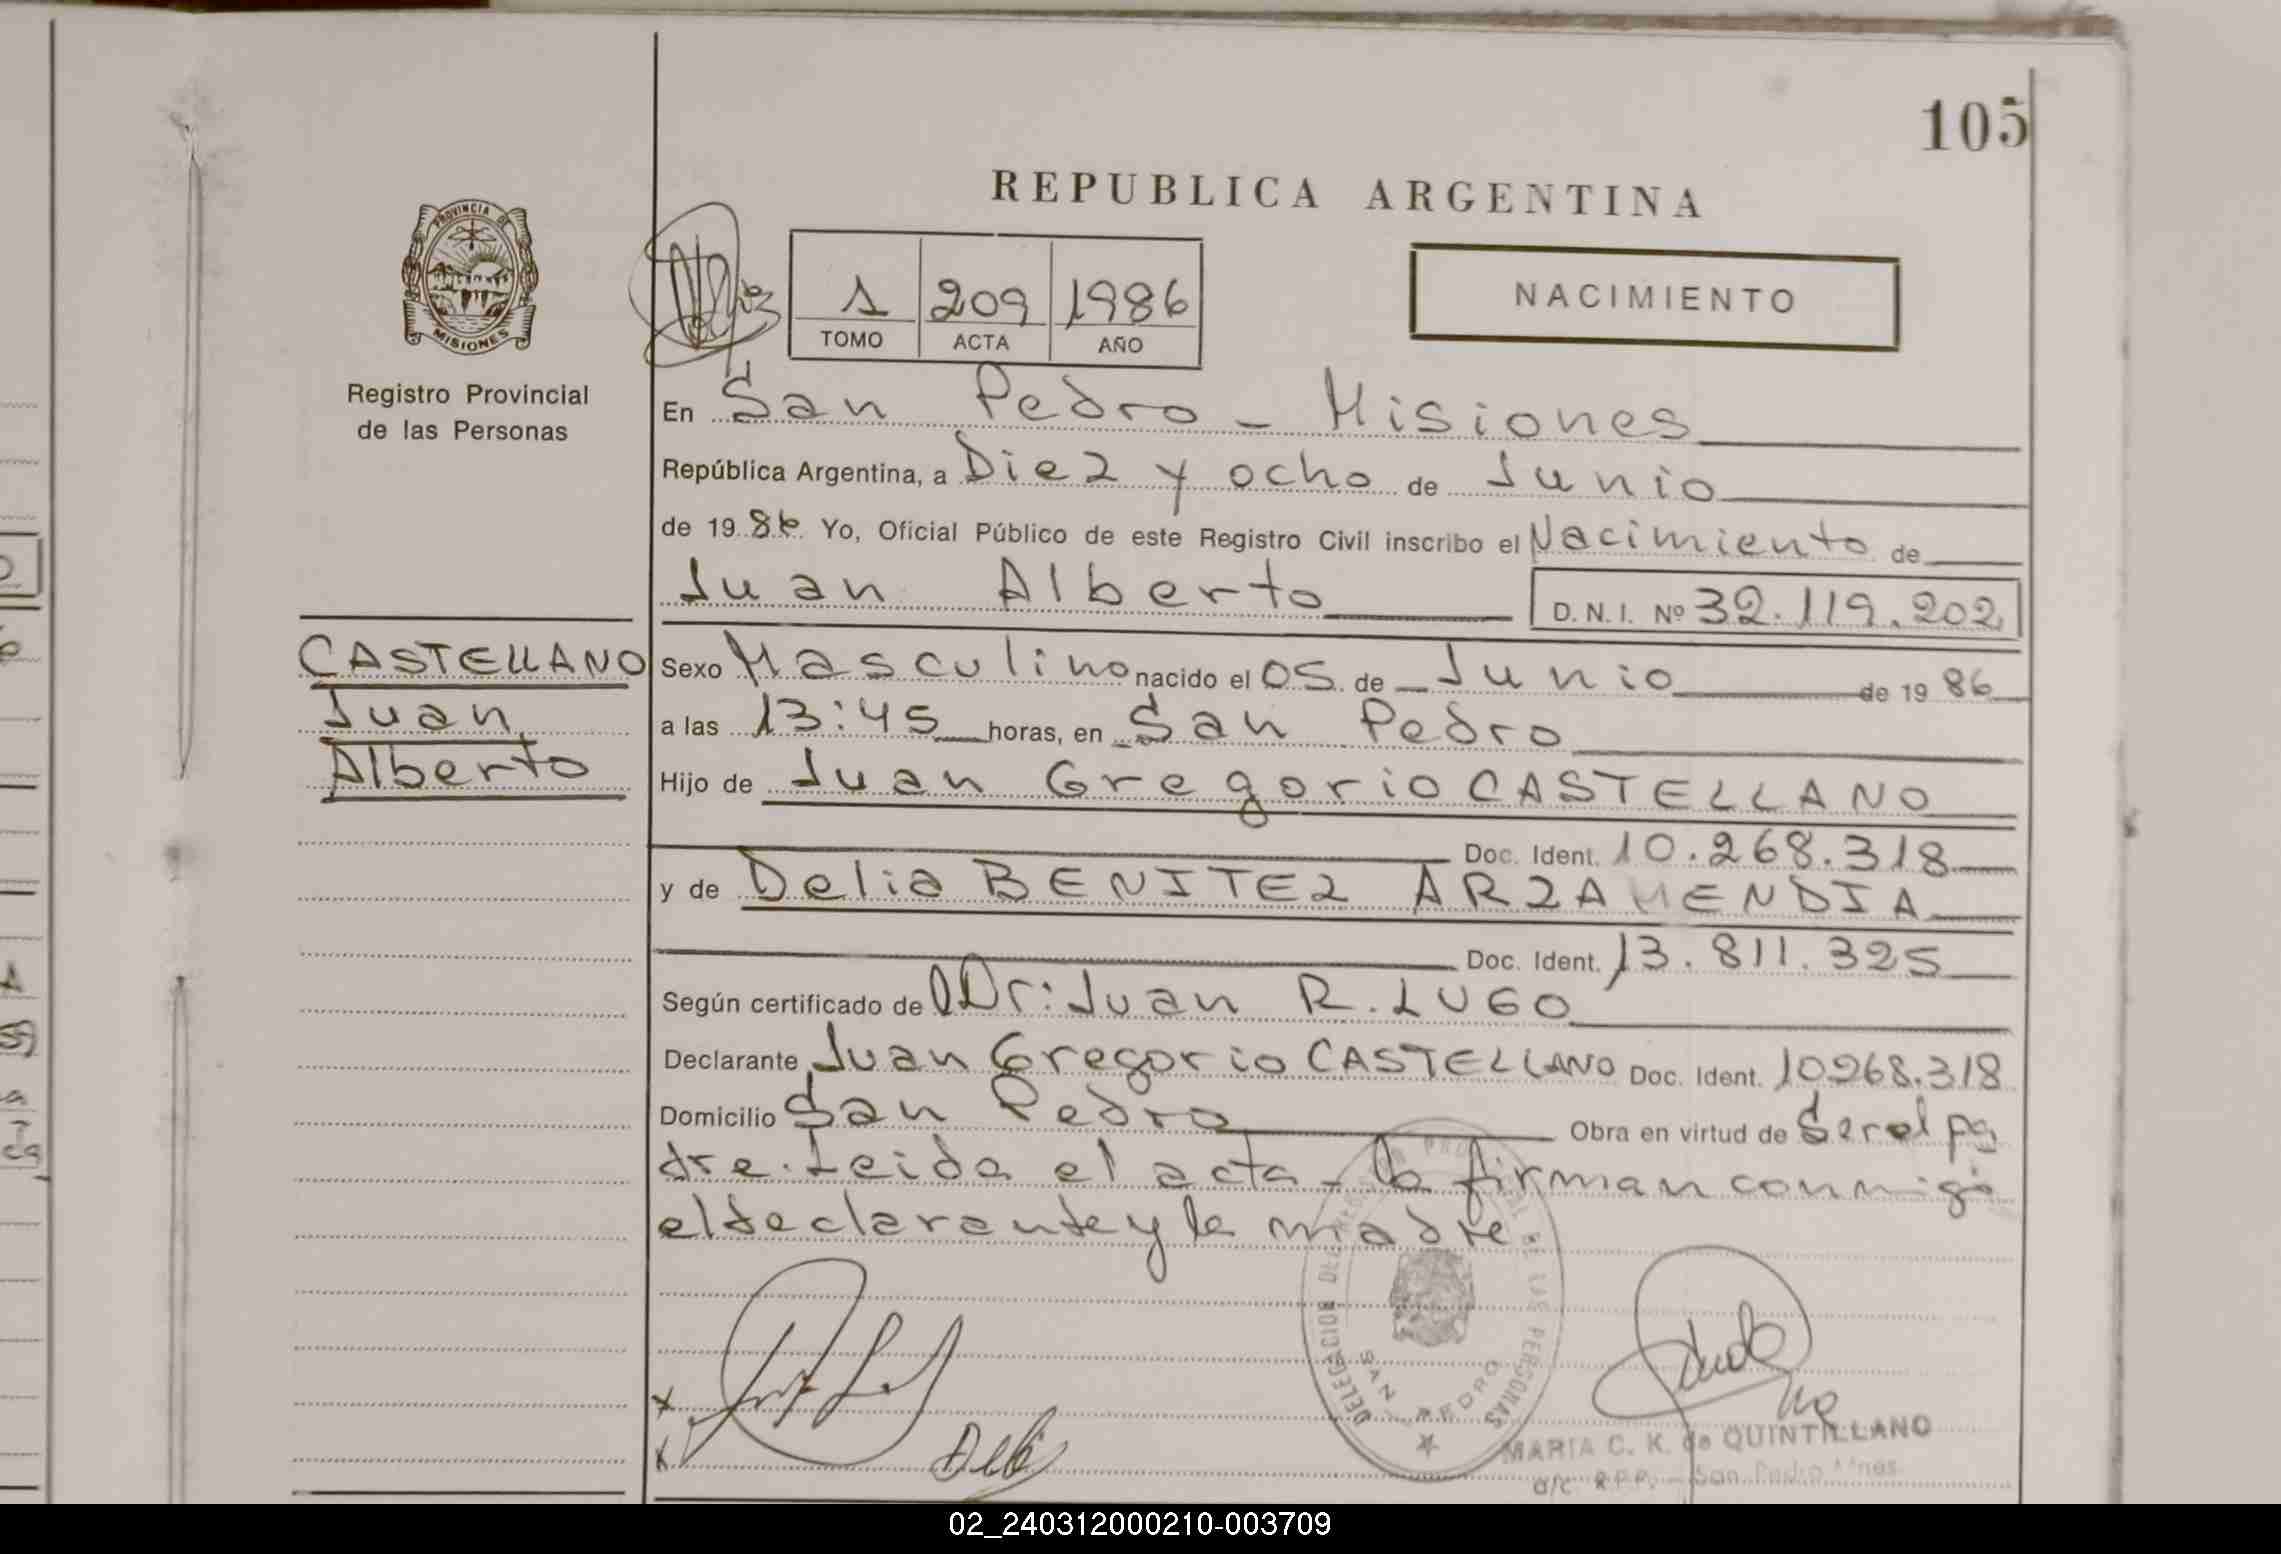 105
REPUBLICA ARGENTINA
PROVINCIA DE
MISIONES
Registro Provincial
de las Personas
1 209 1986
TOMO ACTA AÑO
NACIMIENTO
En San Pedro - Misiones
República Argentina, a Diez y ocho de Junio
de 1986 Yo, Oficial Público de este Registro Civil inscribo el Nacimiento de
Juan Alberto D. N. I. Nº 32.119.202
CASTELLANO
Juan
Alberto
Sexo Masculino nacido el 05 de Junio de 1986
a las 13:45 horas, en San Pedro
Hijo de Juan Gregorio CASTELLANO
Doc. Ident. 10.268.318
y de Delia BENITEZ ARZAMENDIA
Doc. Ident. 13.811.325
Según certificado de Dr: Juan R. LUGO
Declarante Juan Gregorio CASTELLANO Doc. Ident. 10268.318
Domicilio San Pedro Obra en virtud de Ser el pa
dre. Leida el acta - la firman conmigo
el declarante y la madre
DELEGACION DEL REGISTRO PROVINCIAL DE LAS PERSONAS
SAN PEDRO
MARIA C. K. de QUINTILLANO
a/c R.P.P. - San Pedro Mnes.
02_240312000210-003709